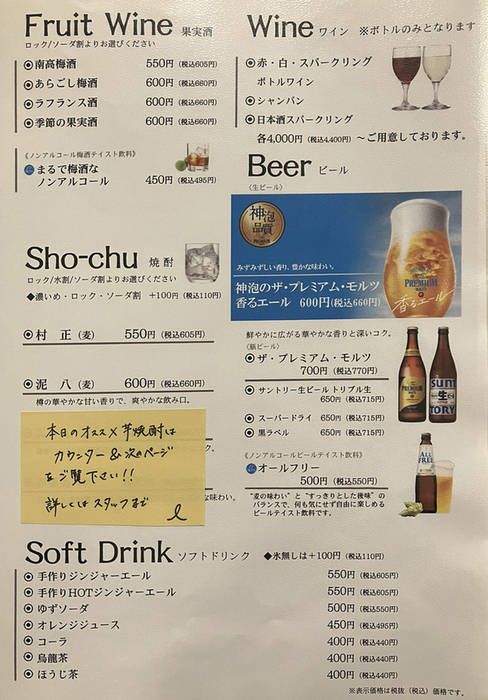 Fruit Wine 果実酒
ロック/ソーダ割よりお選びください
南高梅酒 550円(税込605円)
あらごし梅酒 600円(税込660円)
ラフランス酒 600円(税込660円)
季節の果実酒 600円(税込660円)
《ノンアルコール梅酒テイスト飲料》
まるで梅酒な
ノンアルコール 450円(税込495円)
Sho-chu 焼酎
ロック/水割/ソーダ割よりお選びください
◆濃いめ・ロック・ソーダ割 +100円(税込110円)
村 正(麦) 550円(税込605円)
泥 八(麦) 600円(税込660円)
樽の華やかな甘い香りで、爽やかな飲み口。
本日のオススメ芋焼酎は
カウンター&次のページ
をご覧下さい!!
詳しくはスタッフまで
Wine ワイン ※ボトルのみとなります
赤・白・スパークリング
ボトルワイン
シャンパン
日本酒スパークリング
各4,000円(税込4,400円)~ご用意しております。
Beer ビール
〈生ビール〉
神泡
品質
PREMIUM
みずみずしい香り、豊かな味わい。
神泡のザ・プレミアム・モルツ
香るエール 600円(税込660円)
PREMIUM
香るエール
鮮やかに広がる華やかな香りと深いコク。
〈瓶ビール〉
ザ・プレミアム・モルツ
700円(税込770円)
サントリー生ビール トリプル生
650円(税込715円)
スーパードライ 650円(税込715円)
黒ラベル 650円(税込715円)
SUN
生
TORY
《ノンアルコールビールテイスト飲料》
オールフリー
500円(税込550円)
"麦の味わい"と"すっきりとした後味"の
バランスで、何も気にせず自由に楽しめる
ビールテイスト飲料です。
ALL
FREE
Soft Drink ソフトドリンク ◆氷無しは+100円(税込110円)
手作りジンジャーエール 550円(税込605円)
手作りHOTジンジャーエール 550円(税込605円)
ゆずソーダ 500円(税込550円)
オレンジジュース 450円(税込495円)
コーラ 400円(税込440円)
烏龍茶 400円(税込440円)
ほうじ茶 400円(税込440円)
※表示価格は税抜(税込)価格です。